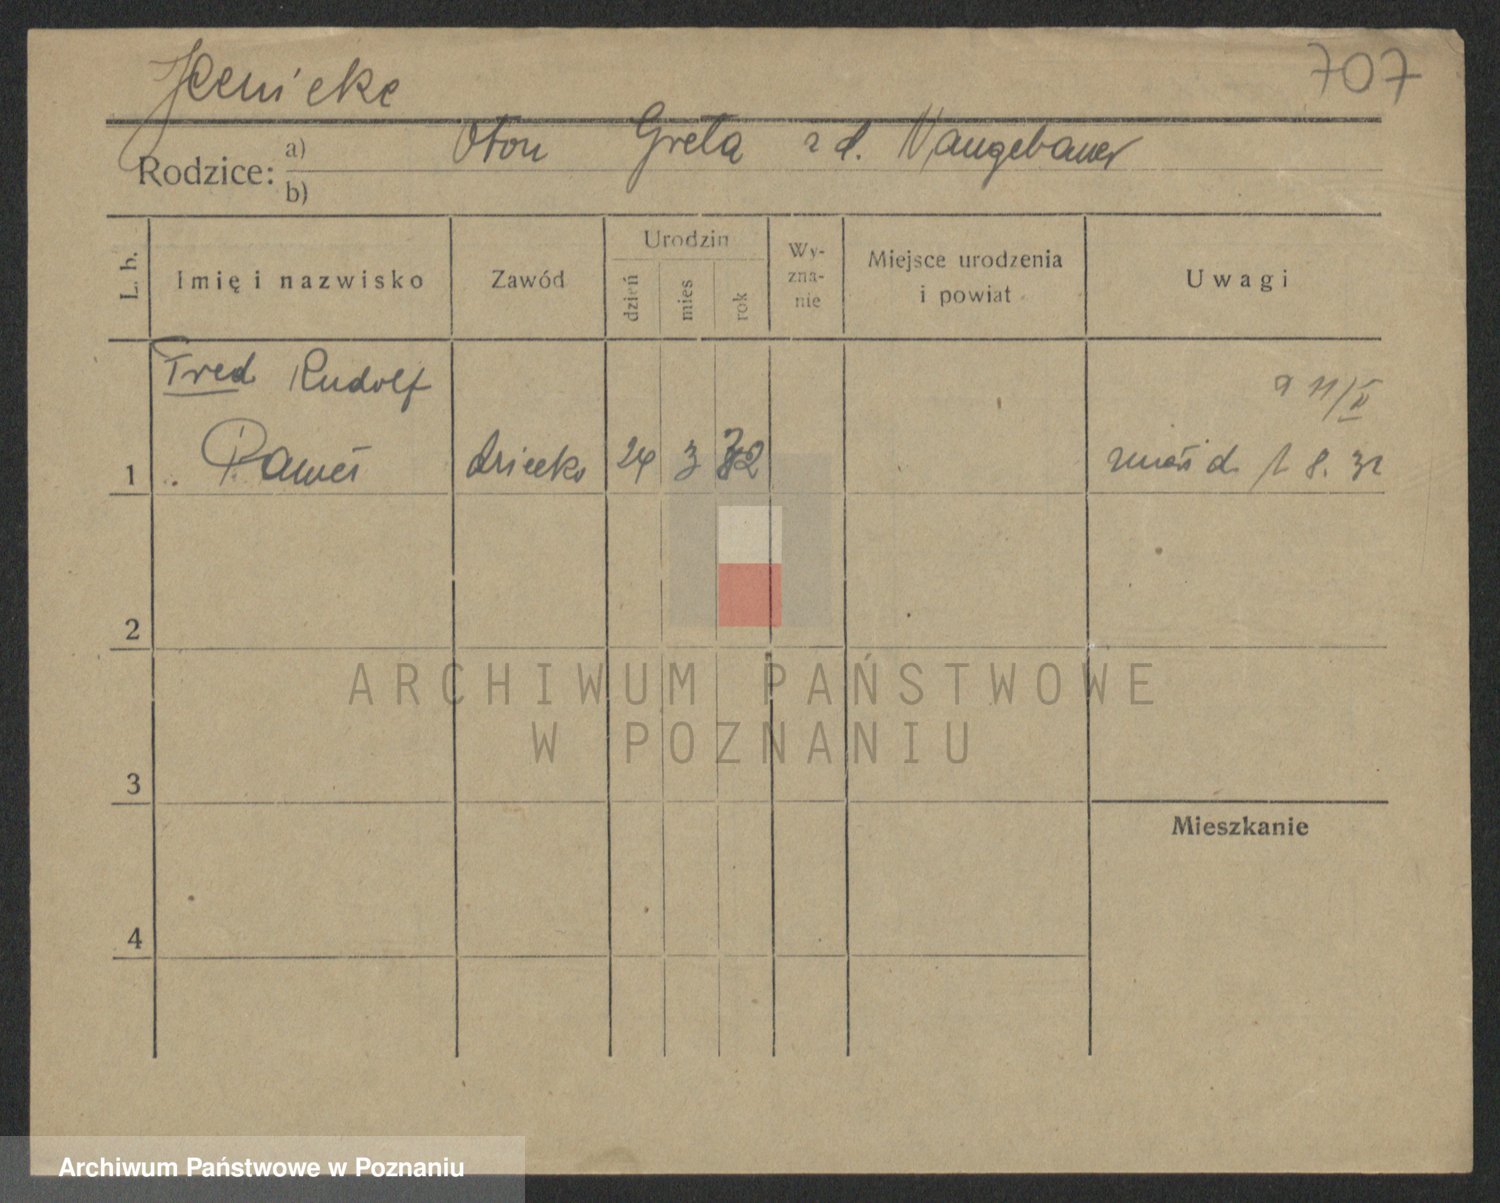 Jeenicke
707
Rodzice: a) Oton Greta z d. Naugebauer
b)
L. b.
Imię i nazwisko
Zawód
Urodzin
dzień
mies
rok
Wy-
zna-
nie
Miejsce urodzenia
i powiat
Uwagi
Fred Rudolf
1
dziecko 24 3 32
8. 32
2
3
Mieszkanie
4
ARCHIWUM PAŃSTWOWE
W POZNANIU
Archiwum Państwowe w Poznaniu